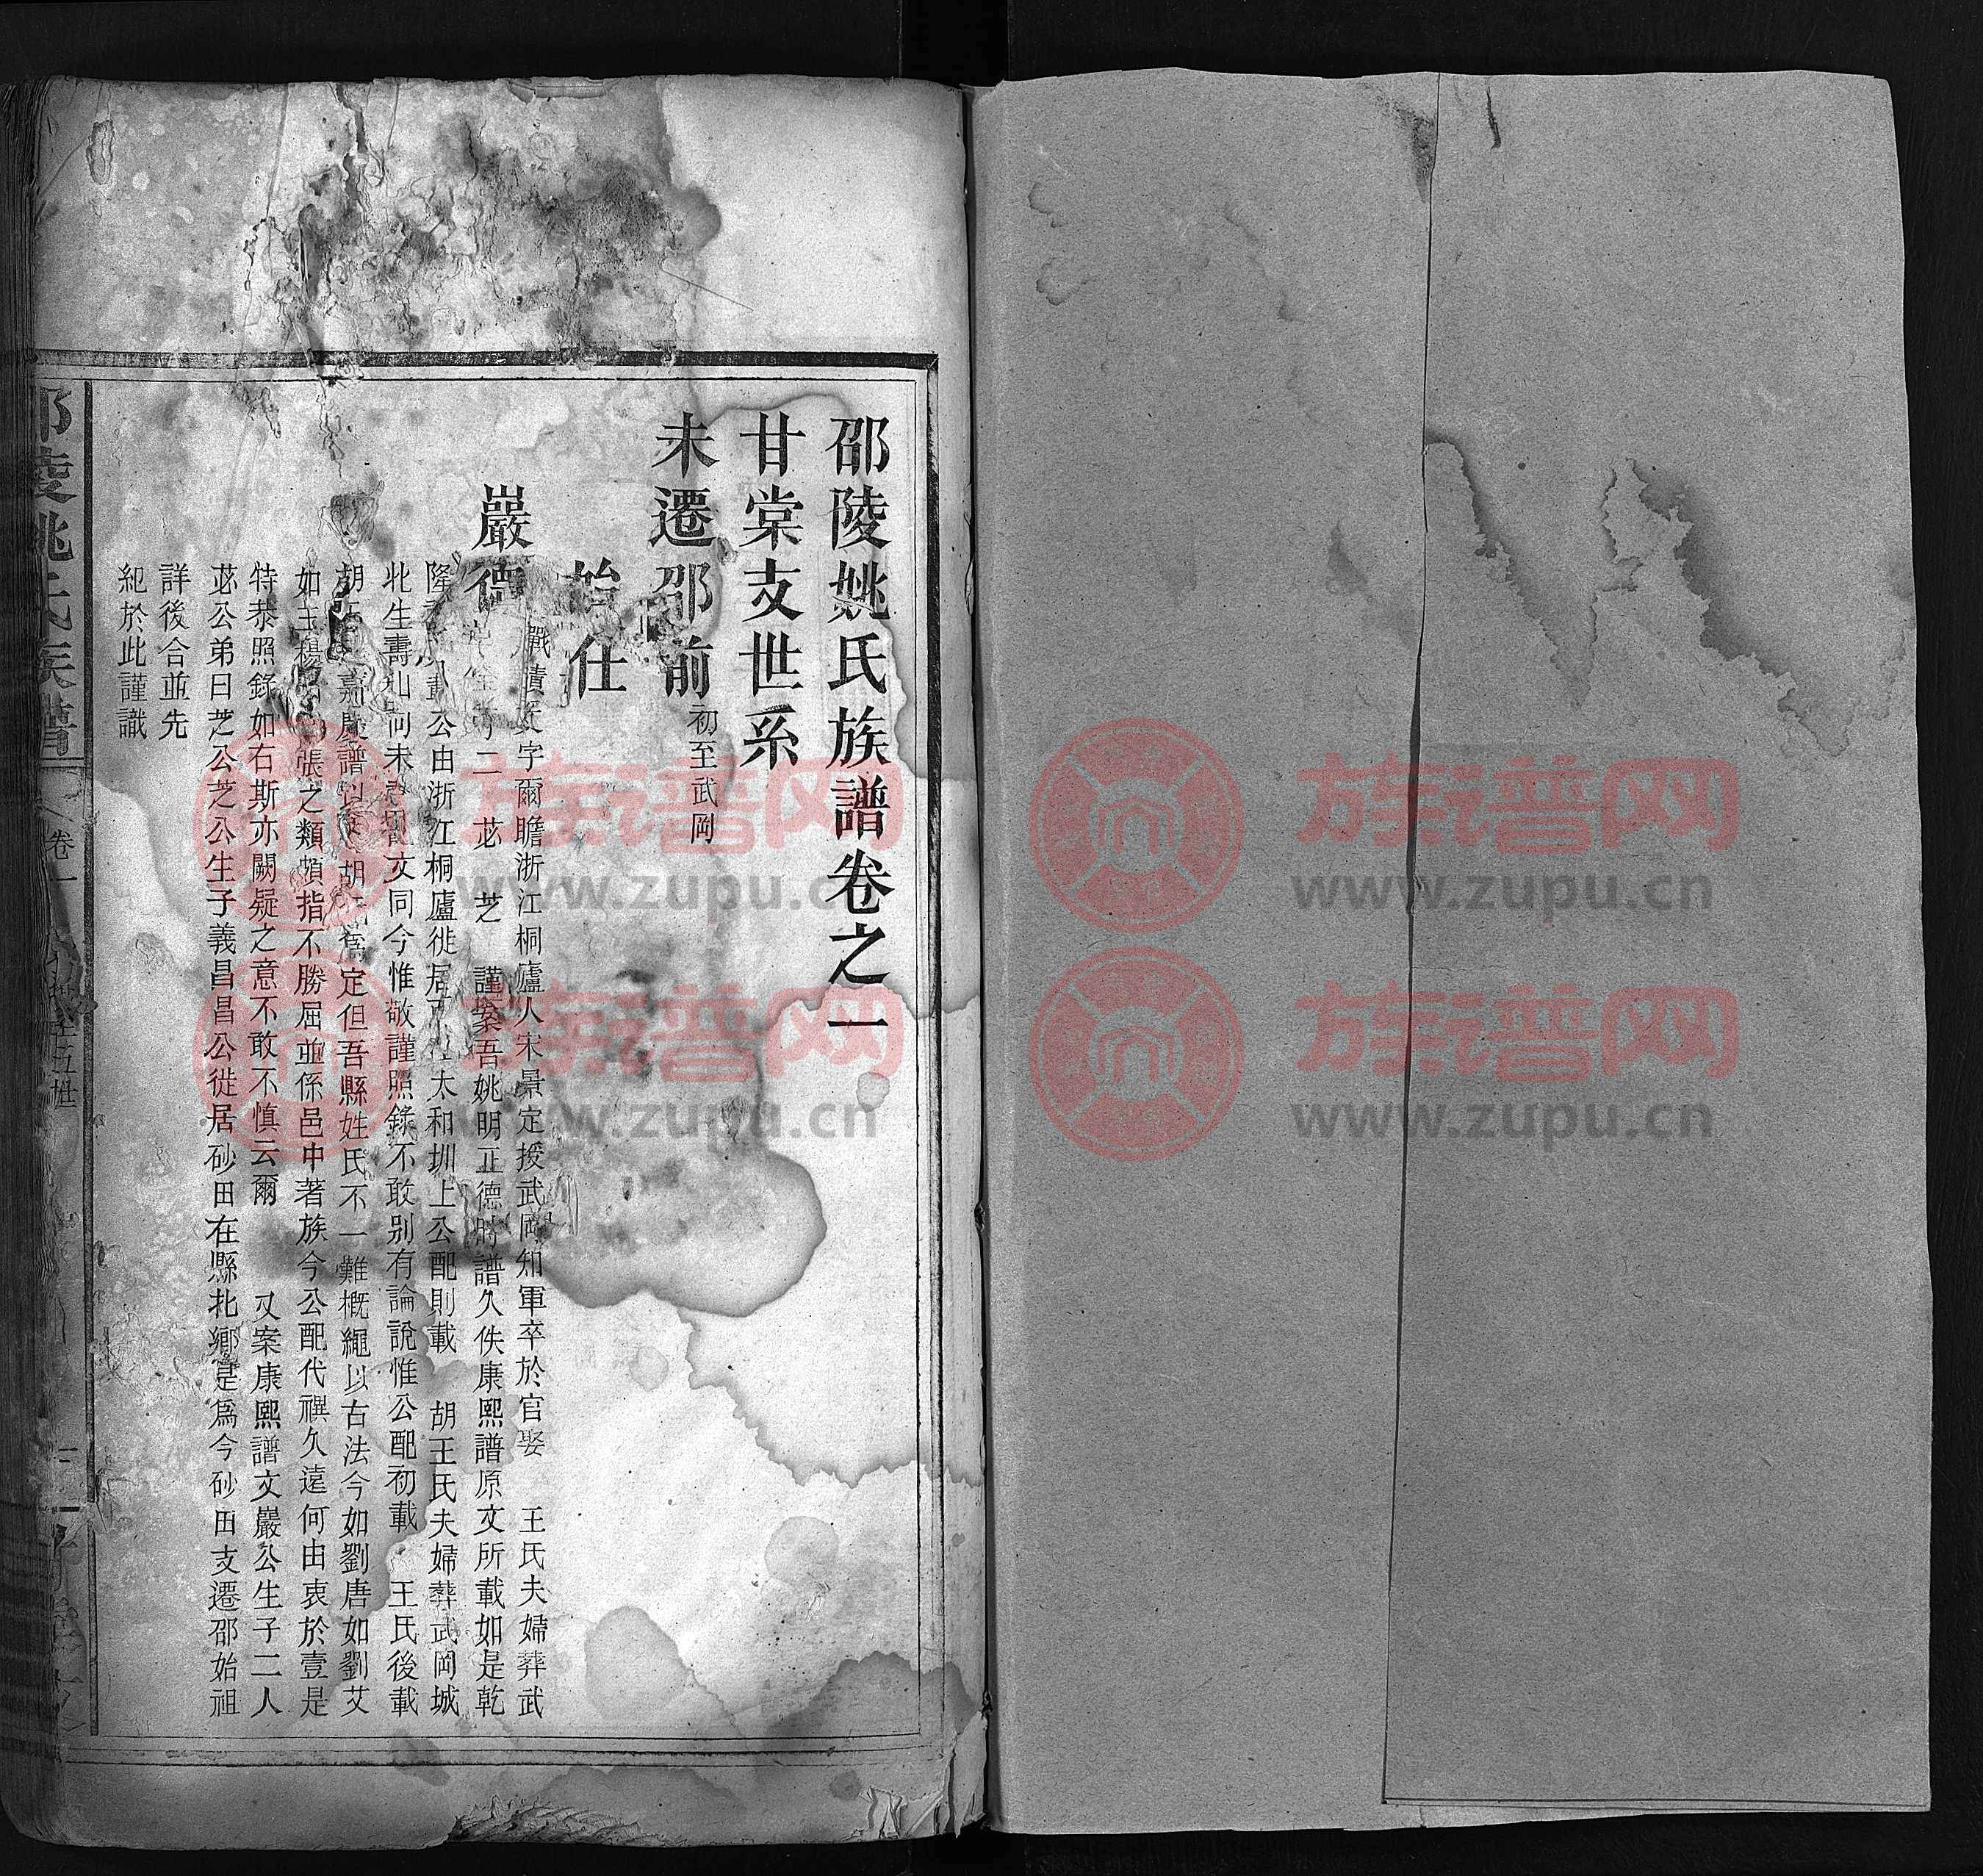 邵陵姚氏族譜卷之一
甘棠支世系
未遷邵前初至武岡
始仕
嚴德
戰績 字爾瞻浙江桐廬人宋景定授武岡知軍卒於官娶 王氏夫婦葬武
二 苾 芝 謹案吾姚明正德時譜久佚康熙譜原文所載如是乾
隆 公由浙江桐廬徙居 太和圳上公配則載 胡王氏夫婦葬武岡城
北生壽山何未 文同今惟敬謹照錄不敢别有論說惟公配初載 王氏後載
胡 嘉慶譜以 胡 定但吾縣姓氏不一難概繩以古法今如劉唐如劉艾
如王楊 張之類頗指不勝屈並係邑中著族今公配代禩久遠何由衷於壹是
特恭照錄如右斯亦闕疑之意不敢不慎云爾 又案康熙譜文嚴公生子二人
苾公弟曰芝公芝公生子義昌昌公徙居砂田在縣北鄉是爲今砂田支遷邵始祖
詳後合並先
紀於此謹識
邵陵姚氏族譜
卷一
www.zupu.cn
族谱网
www.zupu.cn
族谱网
www.zupu.cn
族谱网
www.zupu.cn
族谱网